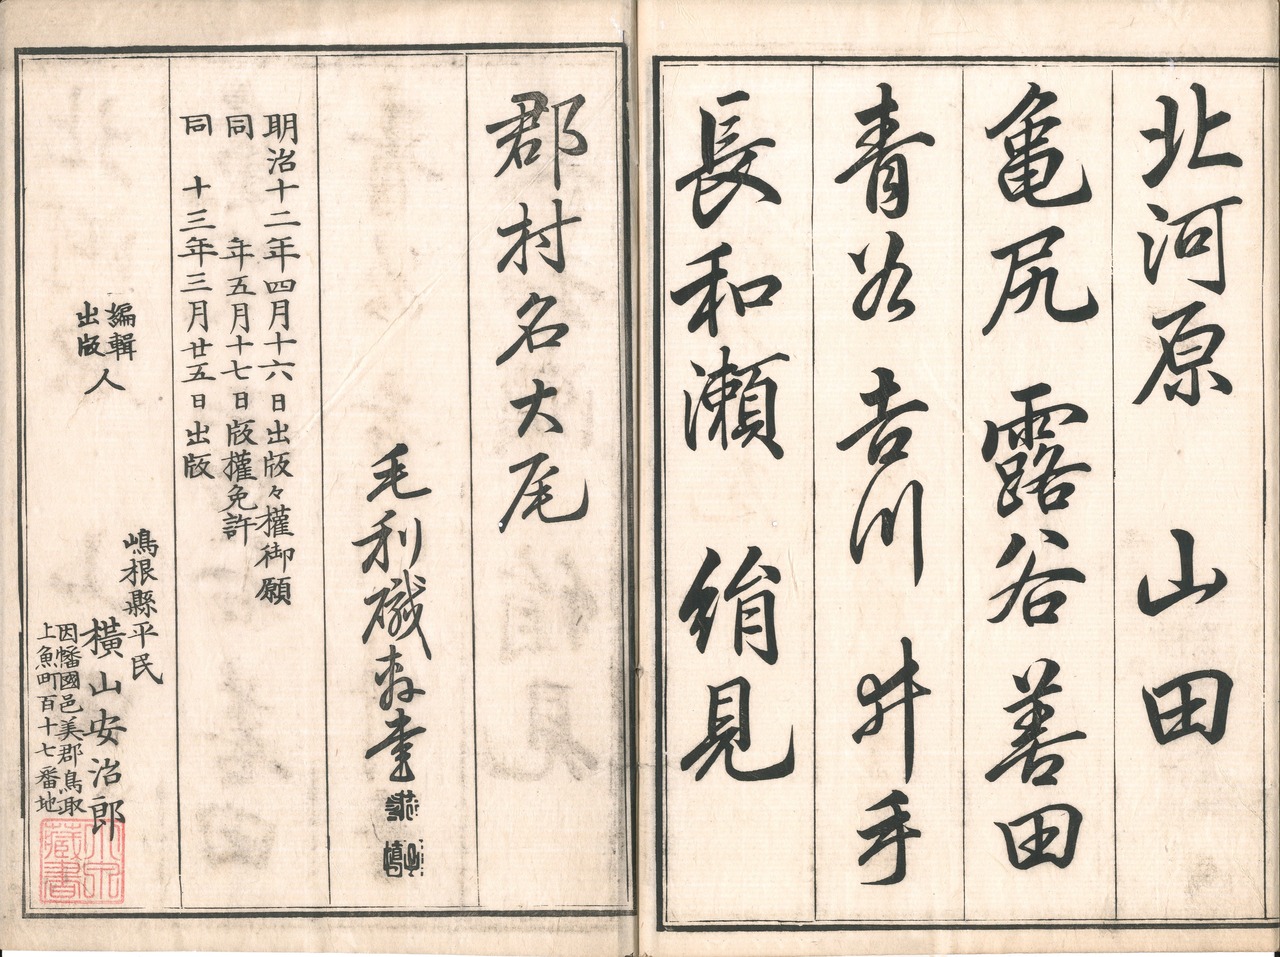 北河原 山田
亀尻 露谷 善田
青谷 吉川 井手
長和瀬 絹見
郡村名大尾
毛利礒 書
明治十二年四月十六日出版々權御願
同 年五月十七日版權免許
同 十三年三月廿五日出版
編輯
出版 人
嶋根縣平民
橫山安治郎
因幡國邑美郡鳥取
上魚町百十七番地
藏書